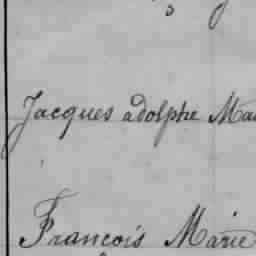 Jacques adolphe Ma
François Marie